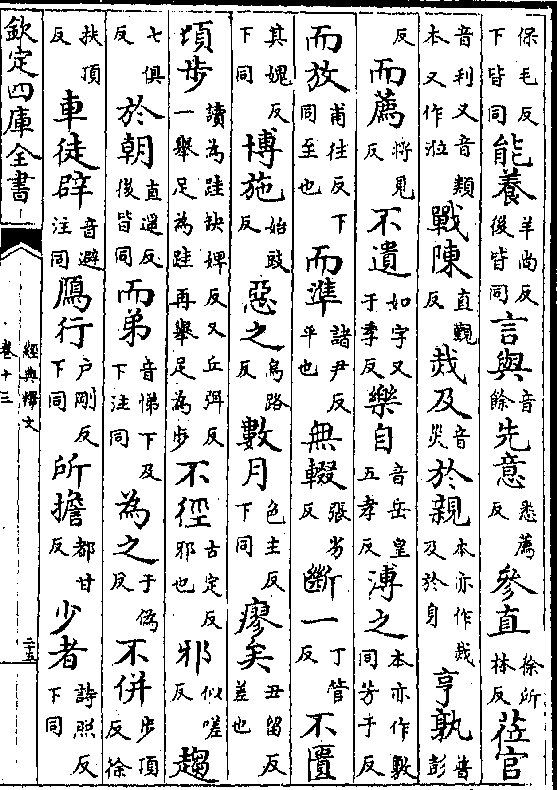 保毛反下皆同能養羊尚反後皆同言與音餘先意悉薦反參直徐所林反莅官
音利又音類本又作涖戰陳直覲反烖及音災於親本亦作烖及於身亨孰普彭
反而薦將見反不遺如字又于季反樂自音岳皇五孝反溥之本亦作敷同芳于反
而放甫往反下同至也而準諸尹反平也無輟張劣反斷一丁管反不匱
其媿反下同博施始豉反惡之烏路反數月色主反下同瘳矣丑留反差也
頃步讀為跬缺婢反又丘弭反一舉足為跬再舉足為步不徑古定反邪也邪似嗟反趨
七俱反於朝直遥反後皆同而弟音悌下及下注同為之于偽反不併步頂反徐
扶頂反車徒辟音避注同鴈行户剛反下同所擔都甘反少者詩照反下同
欽定四庫全書
經典釋文
卷十三
二十五